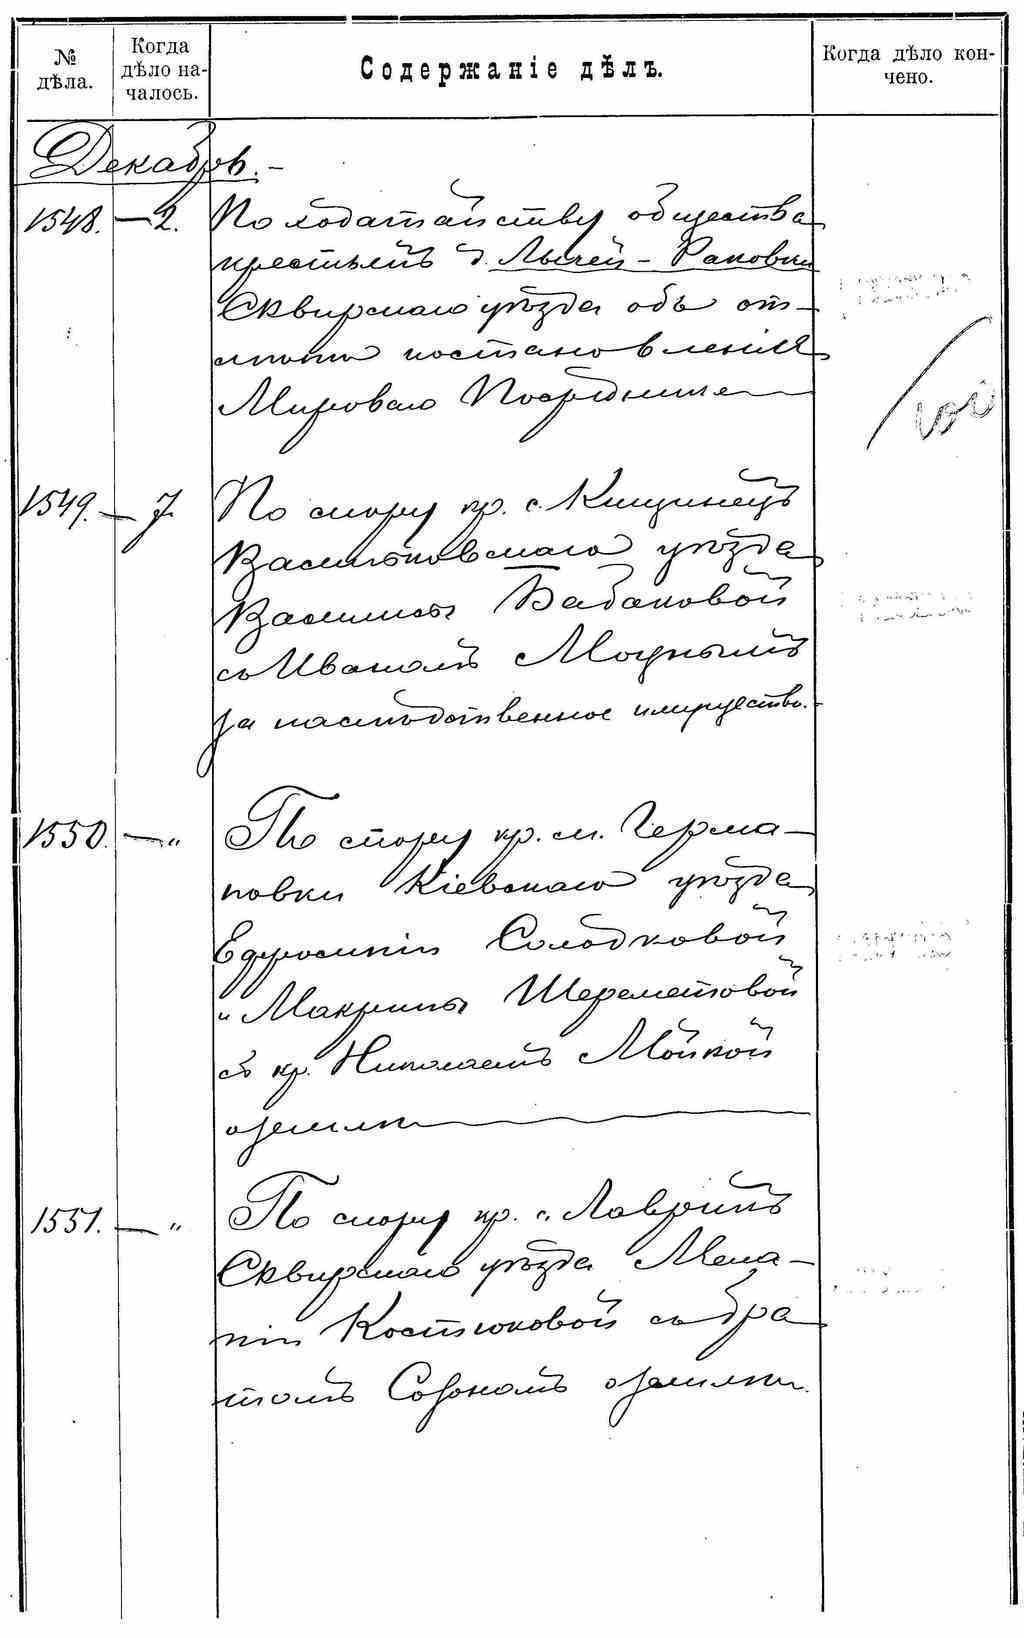 №
дѣла.
Когда
дѣло на-
чалось.
Содержаніе дѣлъ.
Когда дѣло кон-
чено.
Декабрь.-
1548. — 2. По ходатайству общества
крестьянъ д. Лычей - Раковки
Сквирскаго уѣзда объ от-
мѣнѣ постановленія
Мироваго Посредника
1549. — 7. По спору кр. с. Кищинецъ
Васильковскаго уѣзда
Василисы Бабаковой
съ Иваномъ Моцнымъ
за наслѣдственное имущество.-
1550. — „ По спору кр. м. Герма-
новки Кіевскаго уѣзда
Ефросиніи Солодковой
и Макрины Шереметовой
съ кр. Николаемъ Мойкой
о землѣ
1551. — „ По спору кр. с. Лавринъ
Сквирскаго уѣзда Мела-
ніи Костюковой съ бра-
томъ Созономъ о землѣ.